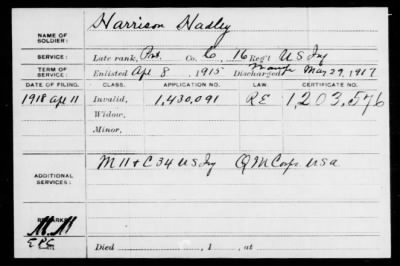 NAME OF SOLDIER: Harrison Hadley
SERVICE: Late rank, Pvt. Co. C, 16 Reg't US Inf
TERM OF SERVICE: Enlisted Apr 8, 1915 Discharged May 29, 1917
DATE OF FILING. CLASS. APPLICATION NO. LAW. CERTIFICATE NO.
1918 Apr 11 Invalid, 1,430,091 RE 1203,576
Widow,
Minor,
ADDITIONAL SERVICES: M 11 & C 34 US Inf Q M Corps USA
REMARKS:
Died , 1 , at